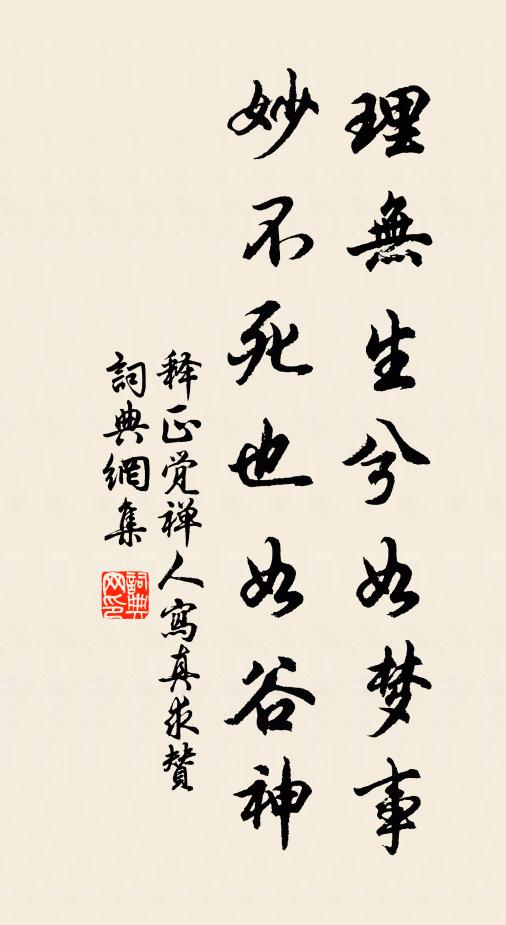 理無生兮如梦事
妙不死也如谷神
释正觉禅人寫真求贊
詞典網集
詞典网印